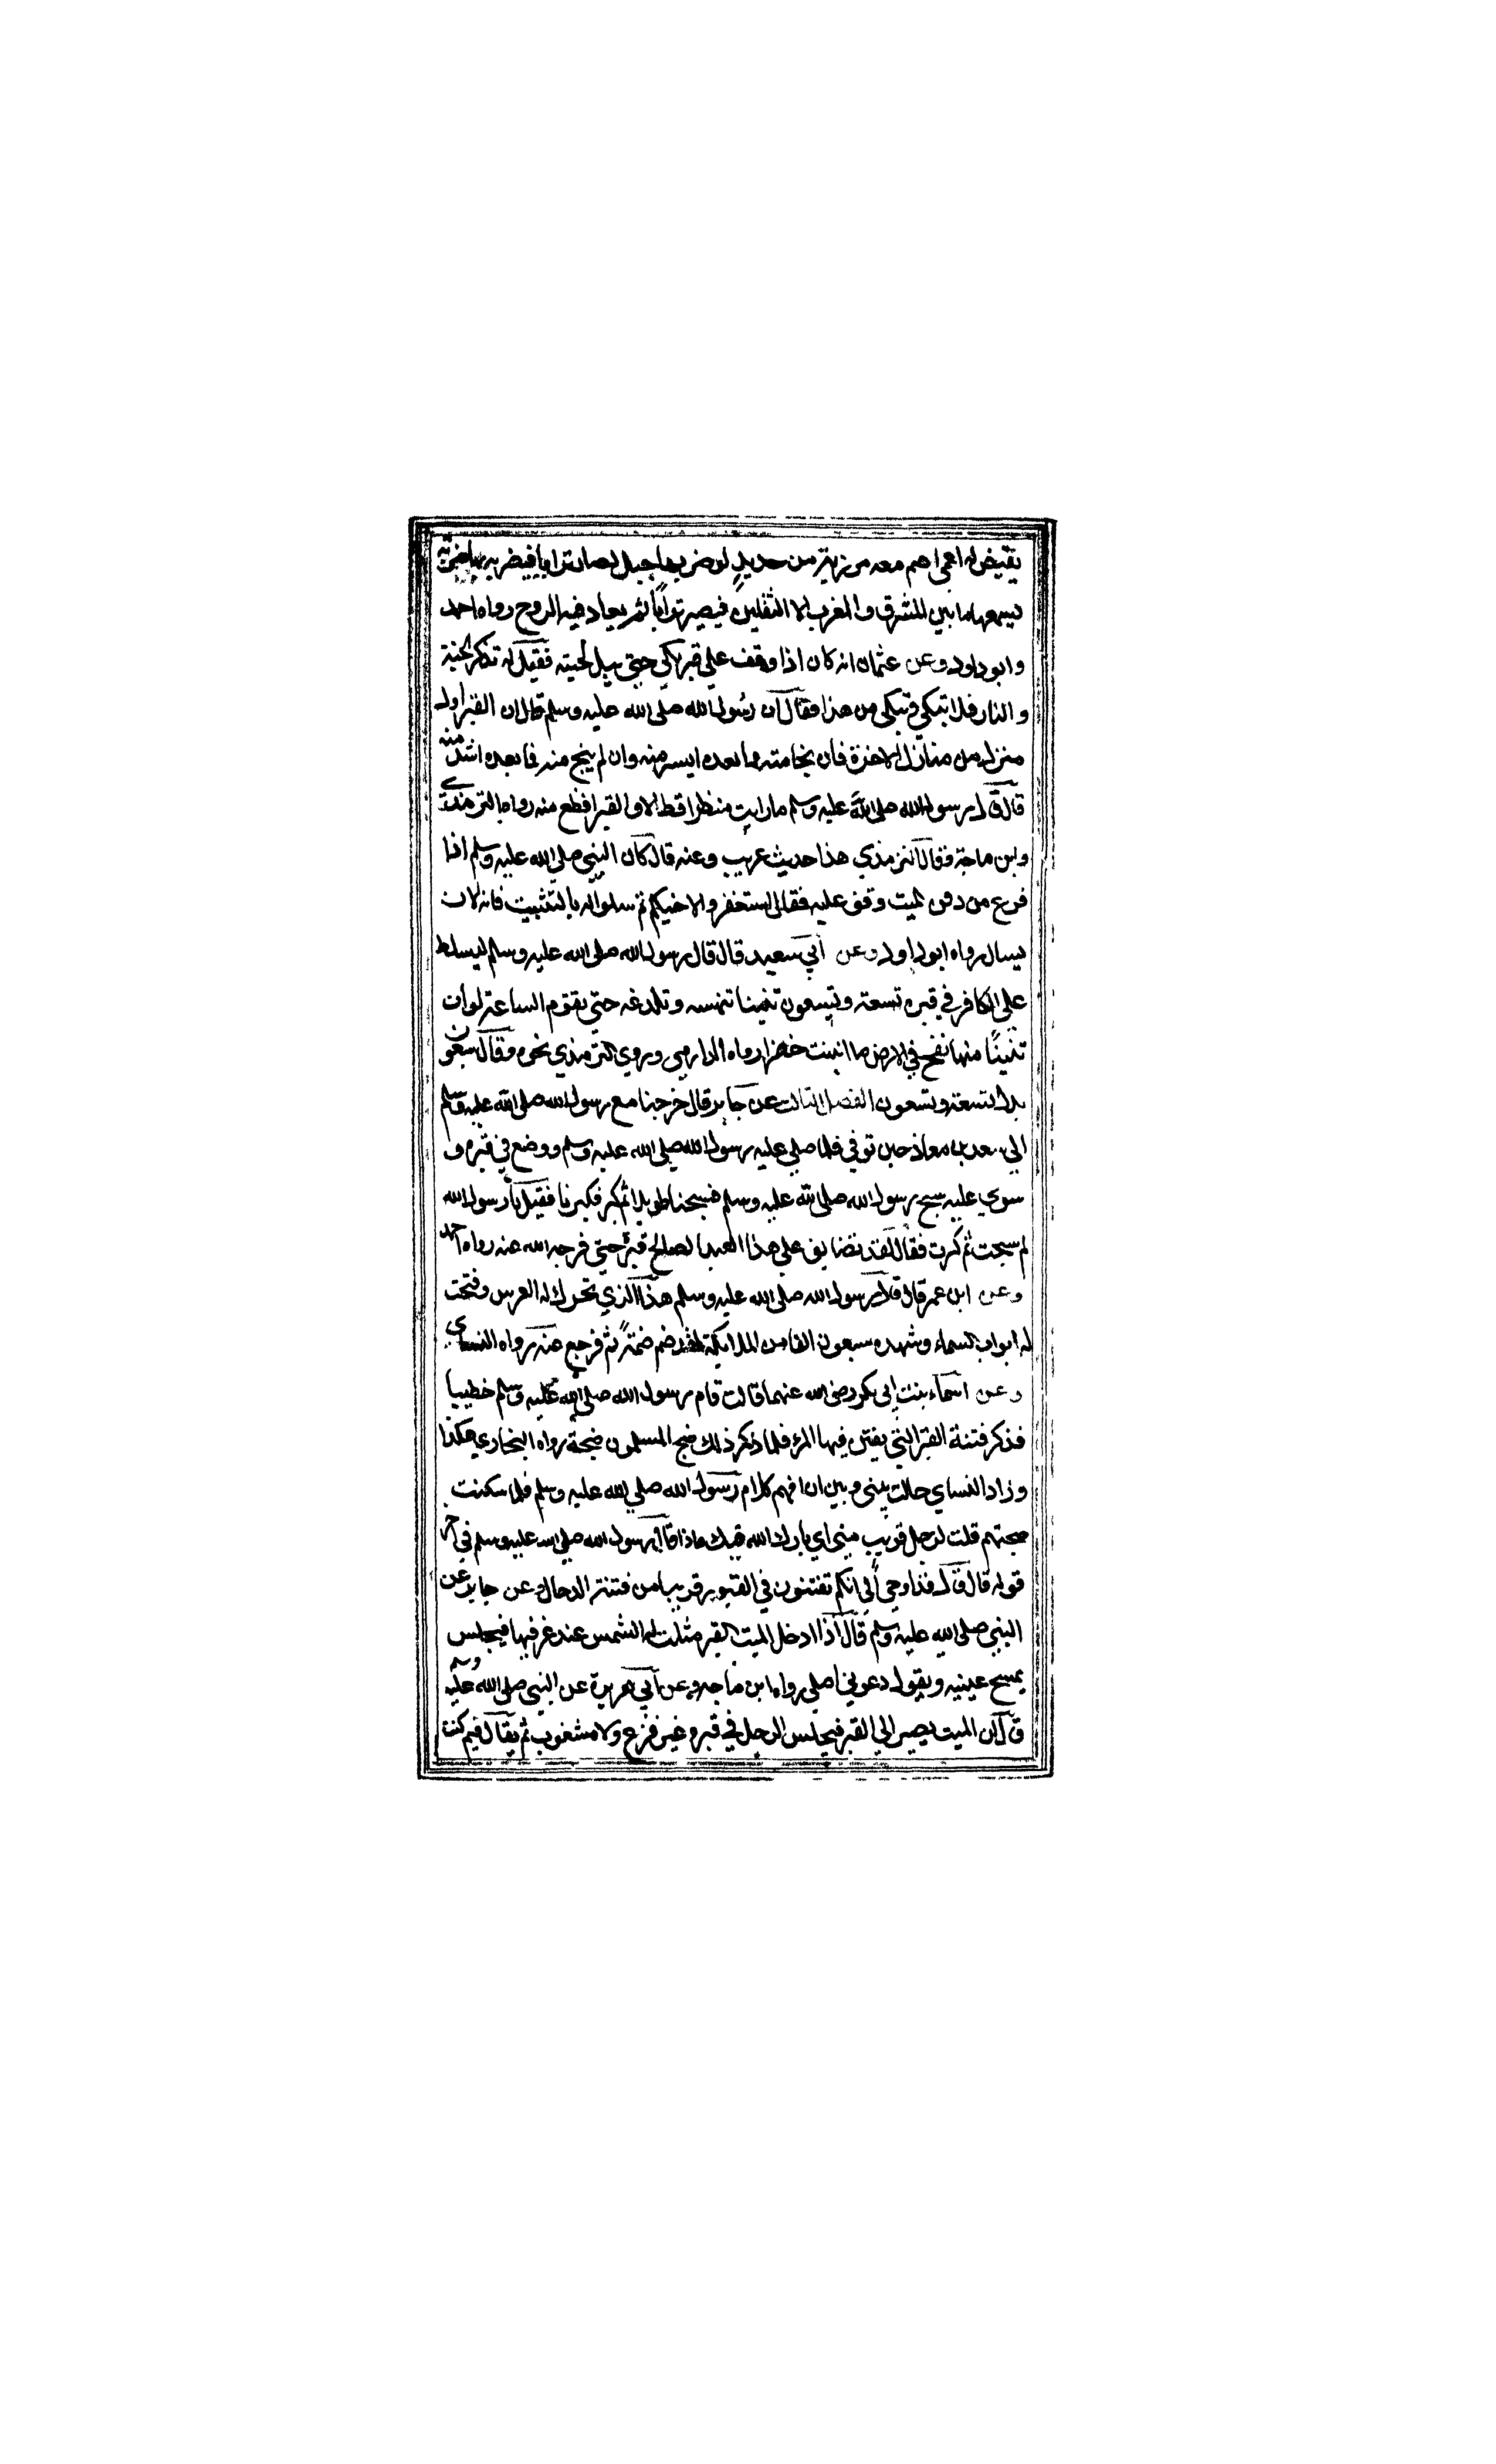 يقيض له اعمى اصم معه مرزبة من حديد لو ضرب بها جبل لصار ترابا فيضربه بها ضربة
يسمعها ما بين المشرق والمغرب الا الثقلين فيصير ترابا ثم يعاد فيه الروح رواه احمد
وابو داود وعن عثمان انه كان اذا وقف علي قبر بكي حتي يبل لحيته فقيل له تذكر الجنة
والنار فلا تبكي وتبكي من هذا فقال ان رسول الله صلى الله عليه وسلم قال ان القبر اول
منزل من منازل الاخرة فان نجا منه فما بعده ايسر منه وان لم ينج منه فما بعده اشد منه
قال قال رسول الله صلى الله عليه وسلم ما رايت منظرا قط الا والقبر افظع منه رواه الترمذي
وابن ماجة فقال الترمذي هذا حديث غريب وعنه قال كان النبي صلي الله عليه وسلم اذا
فرغ من دفن الميت وقف عليه فقال استغفروا لاخيكم ثم سلوا له بالتثبيت فانه الان
يسال رواه ابو داود وعن ابي سعيد قال قال رسول الله صلى الله عليه وسلم ليسلط
على الكافر في قبره تسعة وتسعون تنينا تنهسه وتلدغه حتي يقوم الساعة لو ان
تنينًا منها نفخ في الارض ما انبتت خضرا رواه الدارمي وروي الترمذي نحوه وقال سبعون
بدل تسعة وتسعون الفصل الثالث عن جابر قال خرجنا مع رسول الله صلى الله عليه وسلم
الي سعد بن معاذ حين توفي فلما صلي عليه رسول الله صلى الله عليه وسلم ووضع في قبره و
سوي عليه سبح رسول الله صلى الله عليه وسلم فسبحنا طويلا ثم كبر فكبرنا فقيل يا رسول الله
لم سبحت ثم كبرت فقال لقد تضايق علي هذا العبد الصالح قبره حتي فرجه الله عنه رواه احمد
وعن ابن عمر قال قال رسول الله صلى الله عليه وسلم هذا الذي تحرك له العرش وفتحت
له ابواب السماء وشهده سبعون الفا من الملايكة لقد ضم ضمة ثم فرج عنه رواه النساي
وعن اسماء بنت ابي بكر رضي الله عنهما قالت قام رسول الله صلى الله عليه وسلم خطيبا
فذكر فتنة القبر التي يفتن فيها المرء فلما ذكر ذلك ضج المسلمون ضجة رواه البخاري هكذا
وزاد النساي حالت بيني وبين ان افهم كلام رسول الله صلي الله عليه وسلم فلما سكنت
ضجتهم قلت لرجل قريب مني اي بارك الله فيك ماذا قال رسول الله صلي الله عليه وسلم في اخر
قوله قال قال قد اوحي الي انكم تفتنون في القبور قريبا من فتنة الدجال وعن جابر عن
النبي صلى الله عليه وسلم قال اذا ادخل الميت القبر مثلت له الشمس عند غروبها فيجلس
يمسح عينيه ويقول دعوني اصلي رواه ابن ماجه وعن ابي هريرة عن النبي صلى الله عليه وسلم
قال ان الميت يصير الي القبر فيجلس الرجل في قبره غير فزع ولا مشغوب ثم يقال فيم كنت